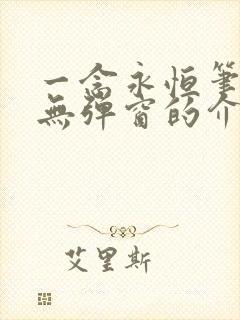 一念永恒筆
無彈窗的介
艾里斯